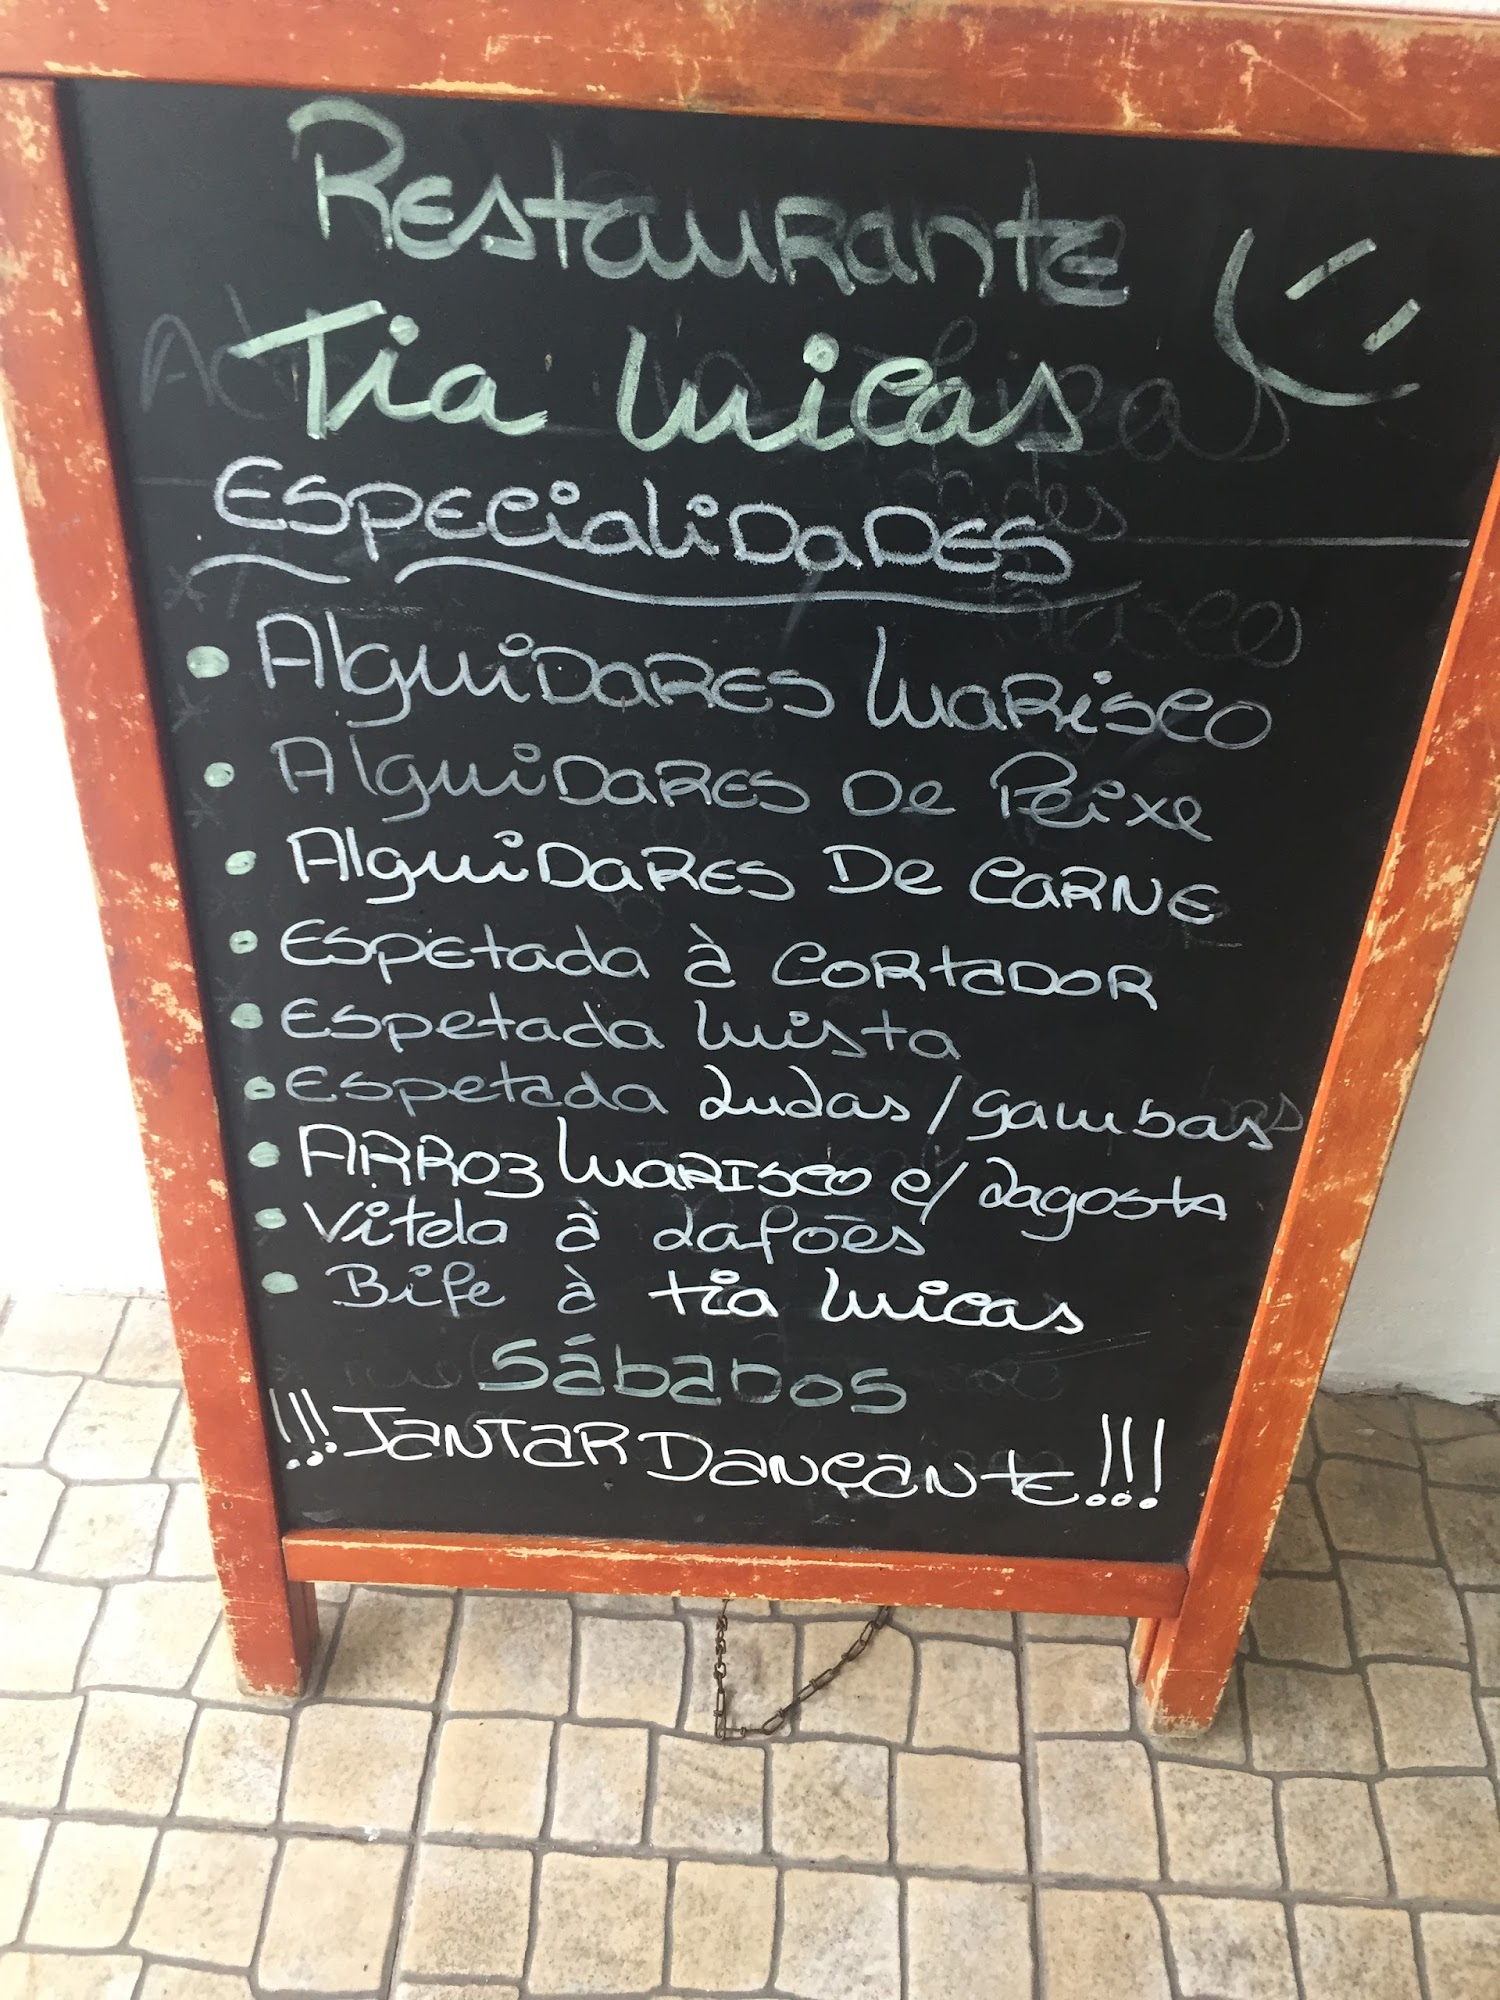 Restaurante
Tia Micas
Especialidades
• Alguidares Marisco
• Alguidares de Peixe
• Alguidares de Carne
• Espetada à Cortador
• Espetada Mista
• Espetada Lulas/Gambas
• Arroz Marisco c/ Lagosta
• Vitela à Lafões
• Bife à tia Micas
Sábados
!!! Jantar Dançante !!!